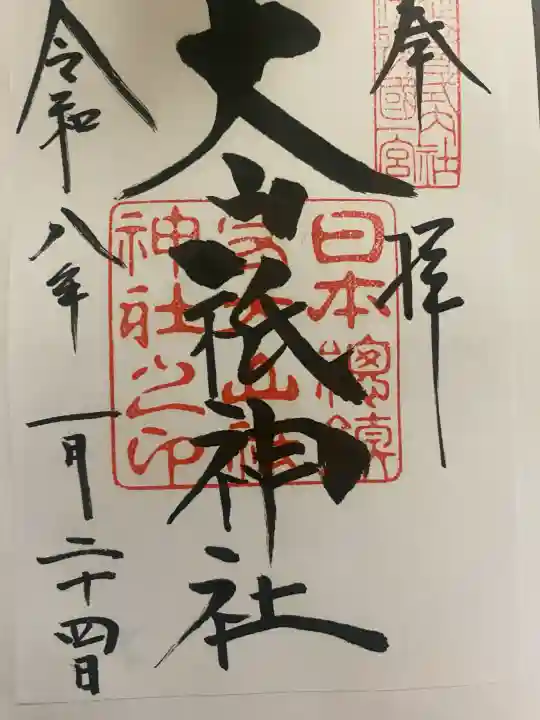 奉拝
大山祇神社
令和八年一月二十四日
日本總鎮
神社之印
國一宮